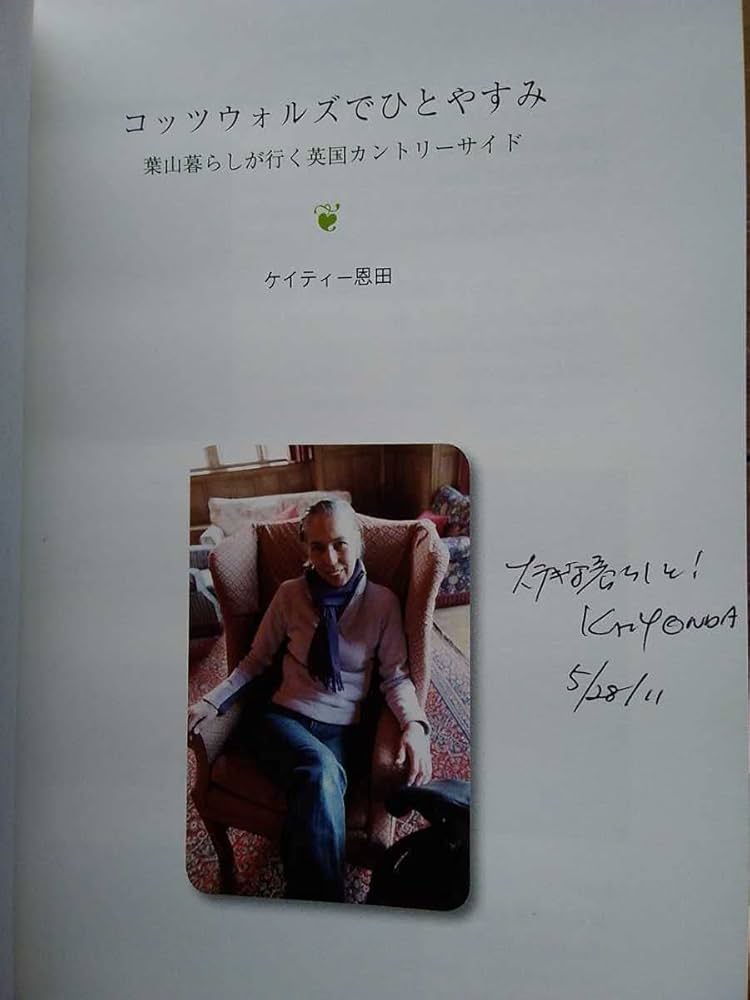 コッツウォルズでひとやすみ
葉山暮らしが行く英国カントリーサイド
ケイティー恩田
ステキな暮らしを!
KATY ONDA
5/28/11